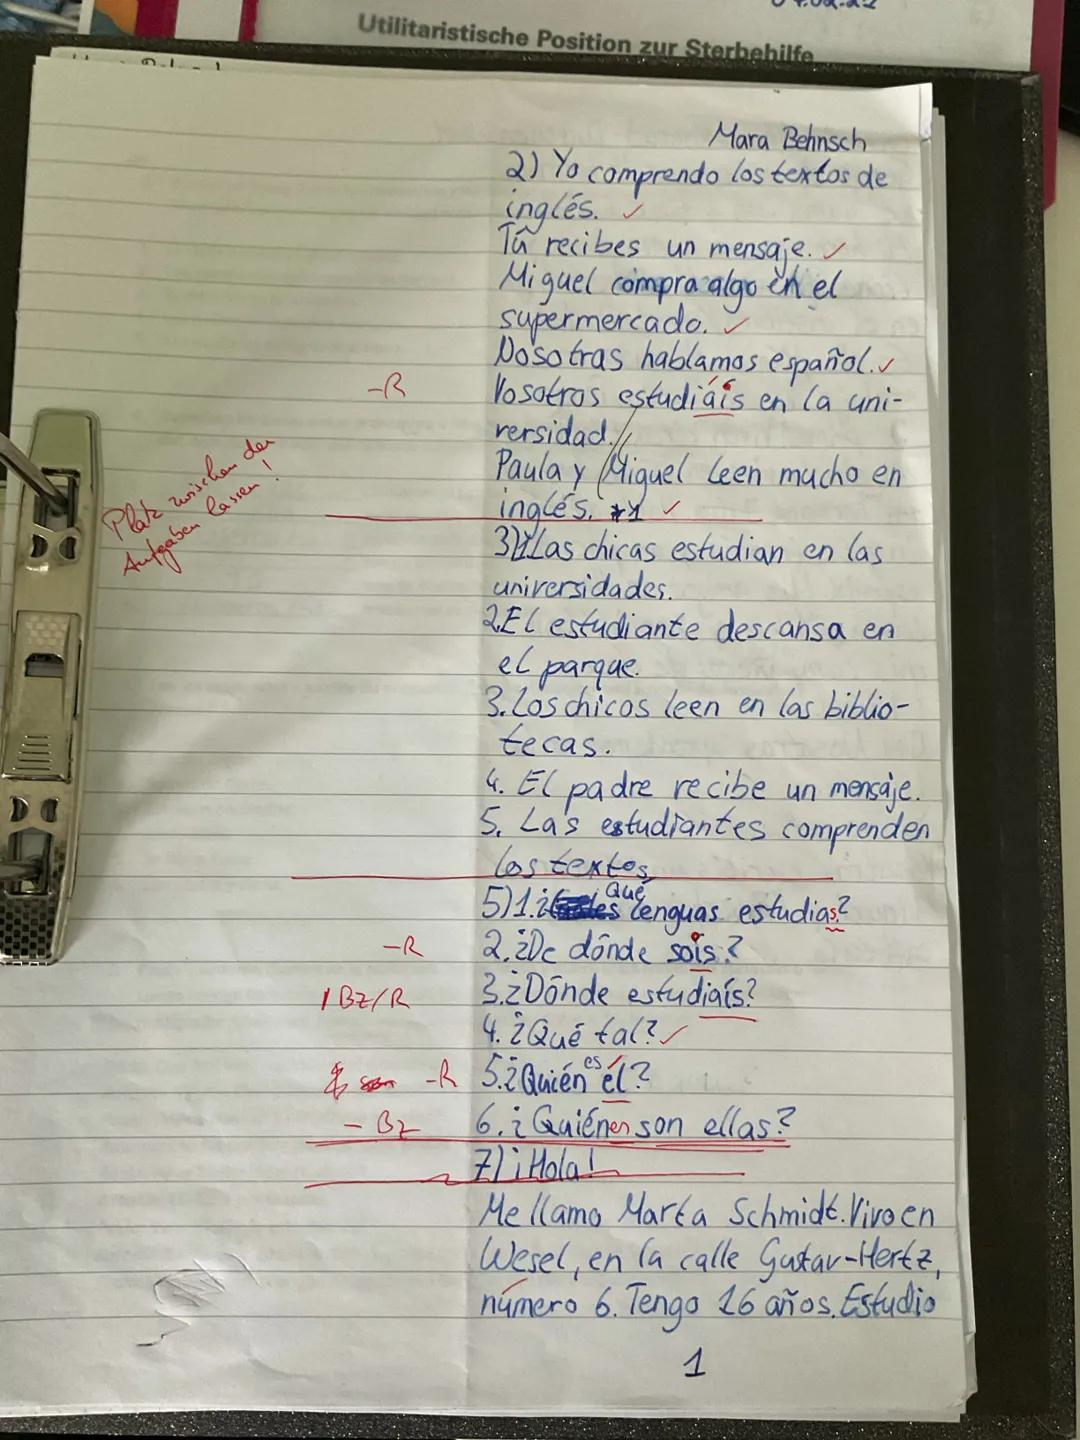 Utilitaristische Position zur Sterbehilfe
Mara Behnsch
2) Yo comprendo los textos de
inglés. ✓
Tú recibes un mensaje. ✓
Miguel compra algo en el
supermercado. ✓
Nosotras hablamos español. ✓
-R Vosotros estudiáis en la uni-
versidad.
Paula y Miguel leen mucho en
inglés. *1 ✓
Platz zwischen den
Aufgaben lassen!
3) 1. Las chicas estudian en las
universidades.
2. El estudiante descansa en
el parque.
3. Los chicos leen en las biblio-
tecas.
4. El padre recibe un mensaje.
5. Las estudiantes comprenden
los textos
5) 1. ¿Qué lenguas estudias?
-R 2. ¿De dónde sois?
1 Bz/R 3. ¿Dónde estudiaís?
4. ¿Qué tal? ✓
-R 5. ¿Quién es él?
- Bz 6. ¿Quiénen son ellas?
7) ¡Hola!
Me llamo Marta Schmidt. Vivo en
Wesel, en la calle Gustav-Hertz,
número 6. Tengo 16 años. Estudio
1